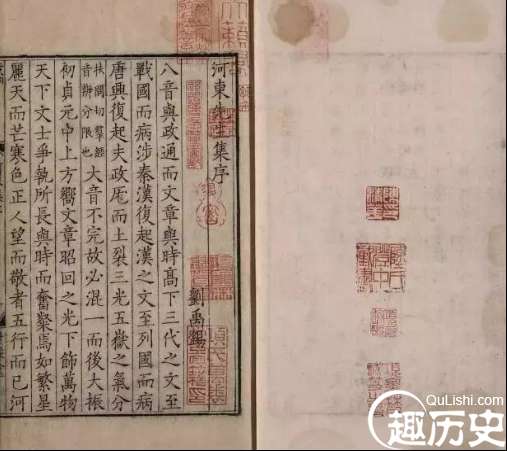 河東先生集序
劉禹錫
八音與政通而文章與時高下三代之文至
戰國而病涉秦漢復起漢之文至列國而病
唐興復起夫政厖而土裂三光五嶽之氣分
扶問切羣經
音辨分限也
大音不完故必混一而後大振
初貞元中上方嚮文章昭回之光下飾萬物
天下文士爭執所長與時而奮粲焉如繁星
麗天而芒寒色正人望而敬者五行而已河
QuLishi.com
趣历史